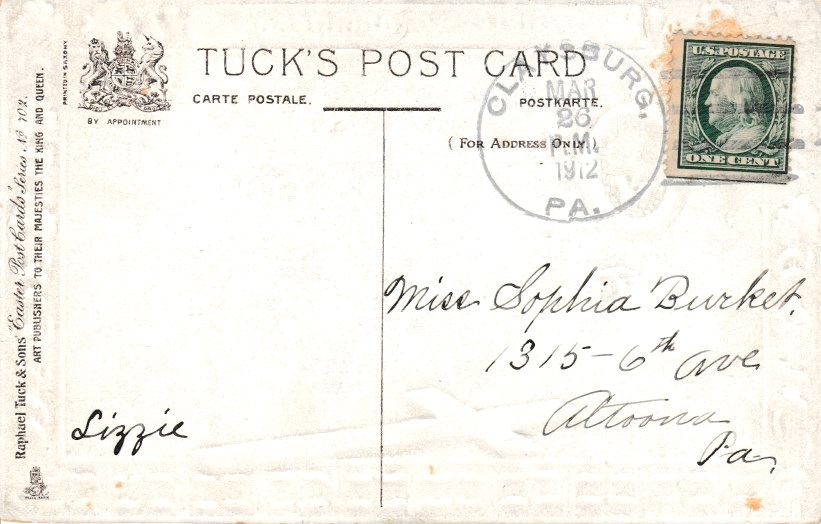 TUCK'S POST CARD
CARTE POSTALE.
POSTKARTE.
(For Address Only.)
BY APPOINTMENT
PRINTED IN SAXONY
Raphael Tuck & Sons' "Easter" Post Cards Series No 702.
ART PUBLISHERS TO THEIR MAJESTIES THE KING AND QUEEN.
CLAYSBURG,
MAR
26
P.M.
1912
PA.
U.S. POSTAGE
ONE CENT
Miss Sophia Burket.
1315-6th Ave
Altoona
Pa.
Lizzie